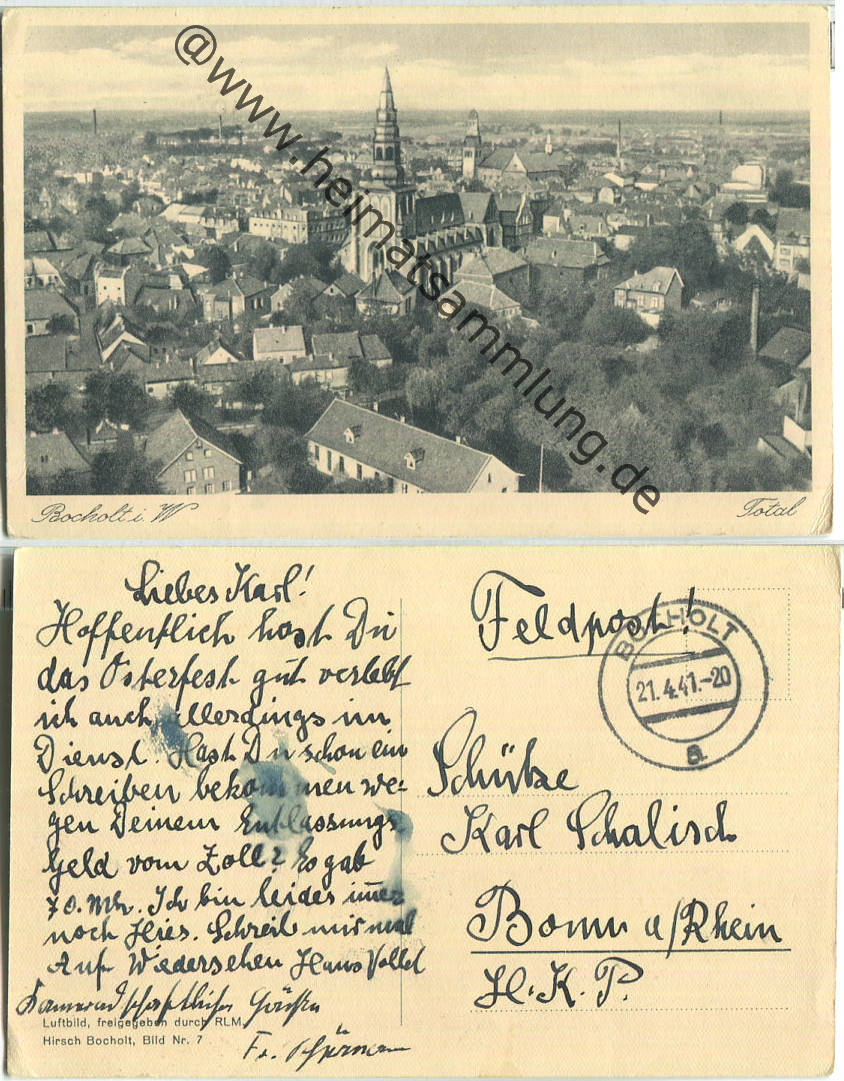 @www.heimatsammlung.de
Bocholt i. W
Total
Liebes Karl!
Hoffentlich hast Du
das Osterfest gut verlebt
ich auch allerdings im
Dienst. Hast Du schon ein
Schreiben bekommen we-
gen Deinem Entlassungs
geld vom Zoll? Es gab
70. Mk. Ich bin leider immer
noch hier. Schreib mir mal
Auf Wiedersehen Hans
Kameradschaftliche Grüßen
Fr.
Luftbild, freigegeben durch RLM,
Hirsch Bocholt, Bild Nr. 7
Feldpost!
BOCHOLT
21.4.41.-20
a
Schütze
Karl Schalisch
Bonn a/Rhein
H.K.P.